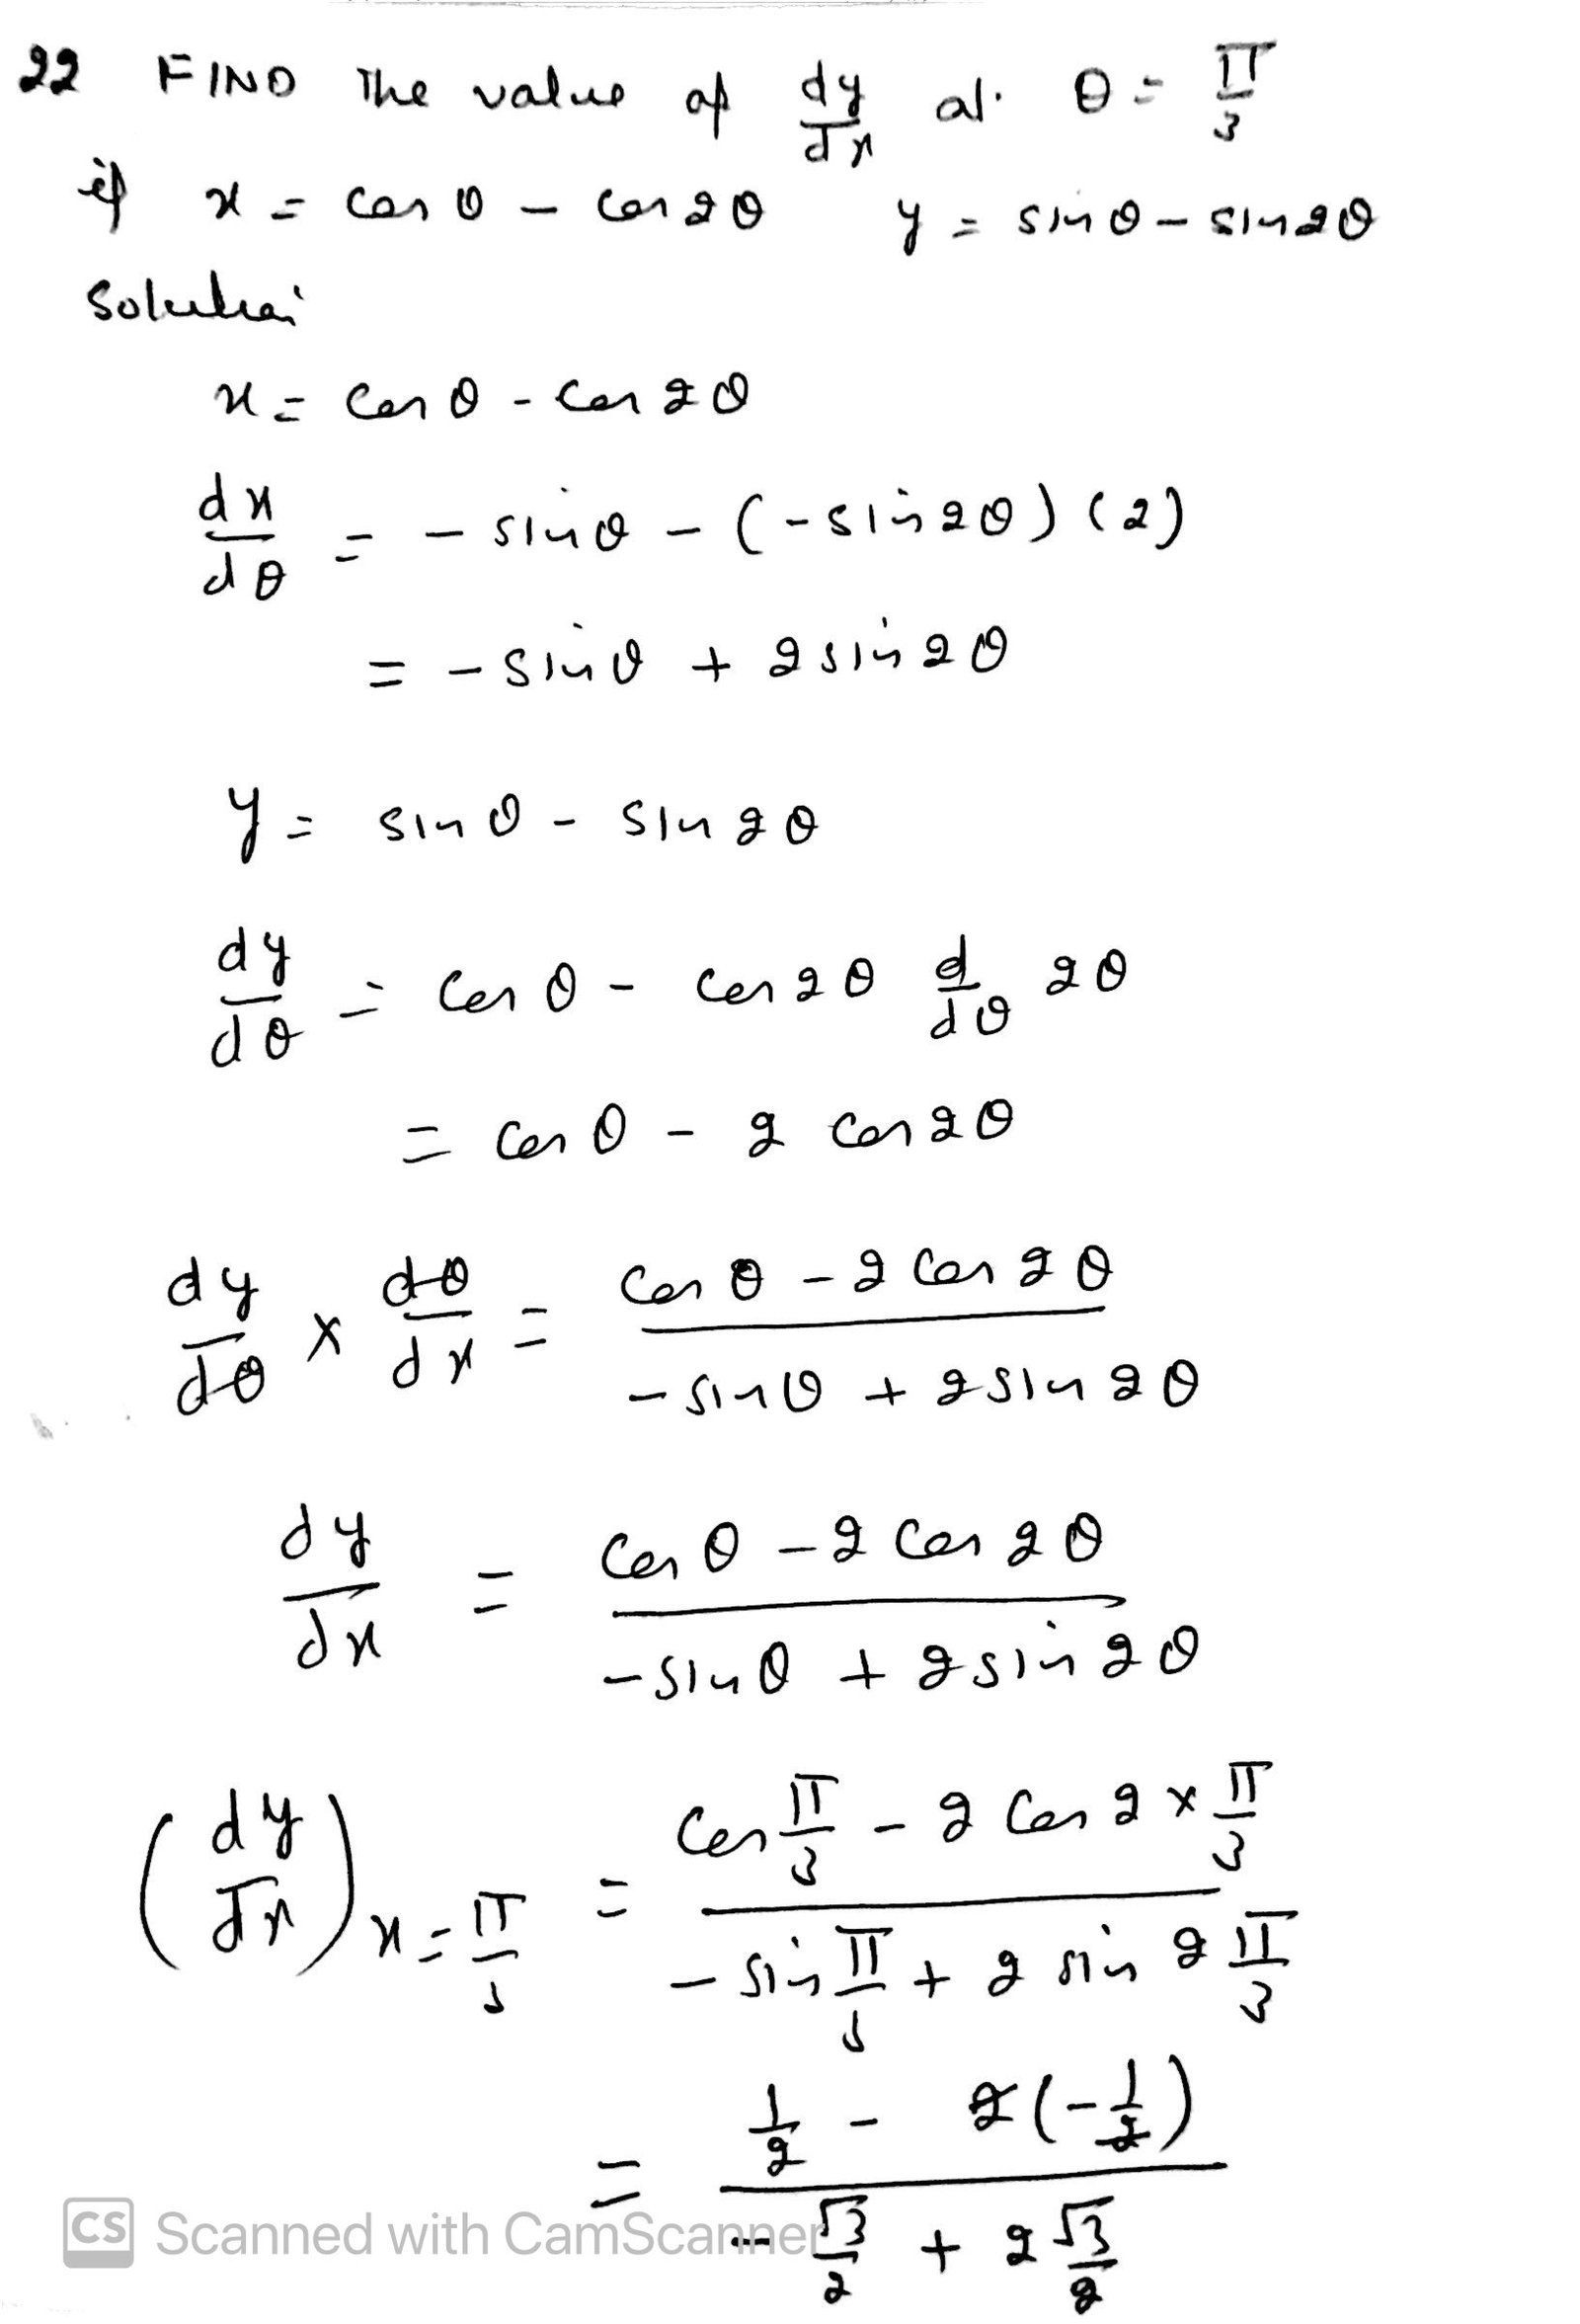 22 FIND The value of dy/dx at θ = π/3
if x = cos θ - cos 2θ y = sin θ - sin 2θ
Solution
x = cos θ - cos 2θ
dx/dθ = - sin θ - (- sin 2θ) (2)
= - sin θ + 2 sin 2θ
y = sin θ - sin 2θ
dy/dθ = cos θ - cos 2θ d/dθ 2θ
= cos θ - 2 cos 2θ
dy/dθ × dθ/dx = (cos θ - 2 cos 2θ)/(- sin θ + 2 sin 2θ)
dy/dx = (cos θ - 2 cos 2θ)/(- sin θ + 2 sin 2θ)
(dy/dx) x = π/3 = (cos π/3 - 2 cos 2 × π/3)/(- sin π/3 + 2 sin 2 π/3)
= (1/2 - 2(-1/2))/(- √3/2 + 2 √3/2)
CS Scanned with CamScanner